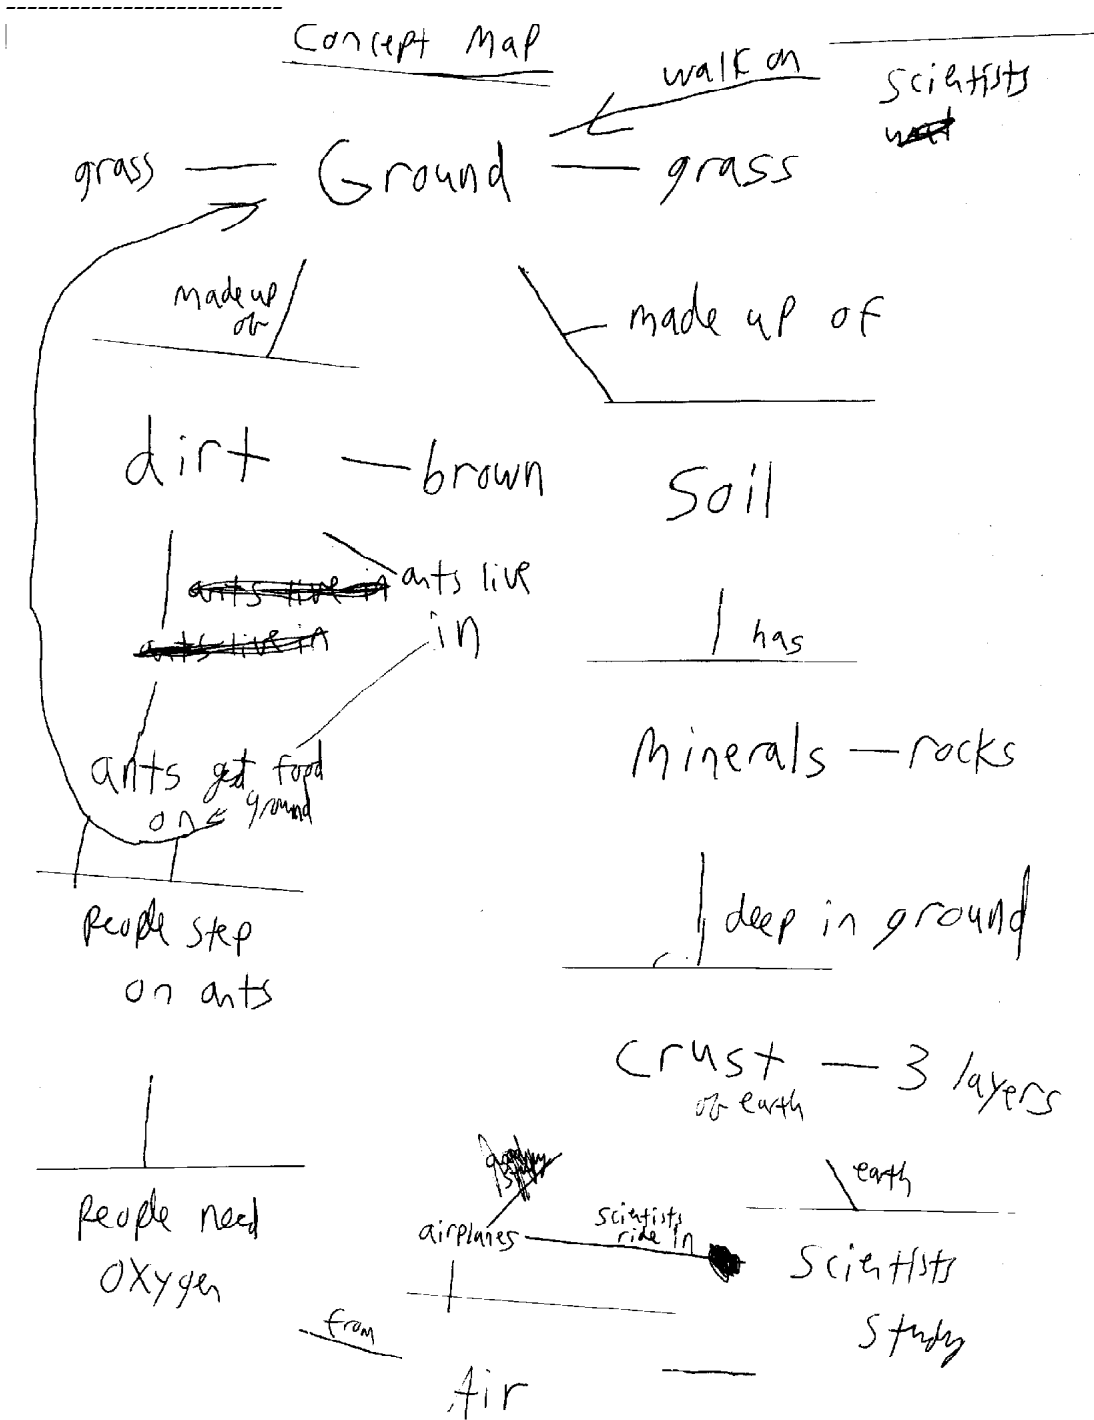 Concept Map
walk on
scientists
grass
Ground
grass
made up
of
made up of
dirt
brown
Soil
ants live in
ants live
in
ants live in
has
ants get food
on ground
Minerals
rocks
deep in ground
People step
on ants
crust
3 layers
of earth
earth
People need
oxygen
airplanes
scientists
ride in
Scientists
study
from
Air